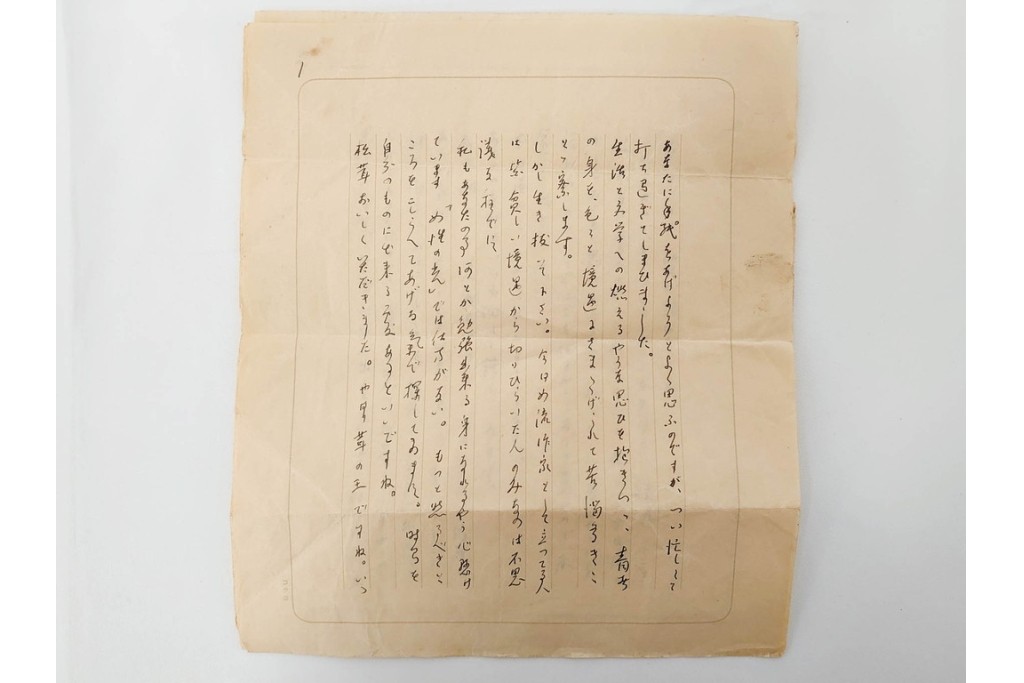 1
あなたに手紙をあげようとよく思ふのですが、つい忙しくて
打ち過ぎてしまひました。
生活と文学への燃えるやうな思ひを抱きつつ、青春
の身を、色々と境遇にさまたげられて苦悩多きこ
とゝ察します。
しかし生き抜いて下さい。今日女流作家として立つてる人
は皆 貧しい境遇から切りひらいた人のみなのは不思
議な程です
私もあなたの事 何とか勉強出来る身になれるやう心懸け
ています 「女性の光」では仕方がない。もつと燃えるべきと
ころをこしらへてあげる気で探してゐます。時間を
自分のものに出来る処があるといいですね。
松茸おいしくいただきました。や是茸の王ですね。いつ